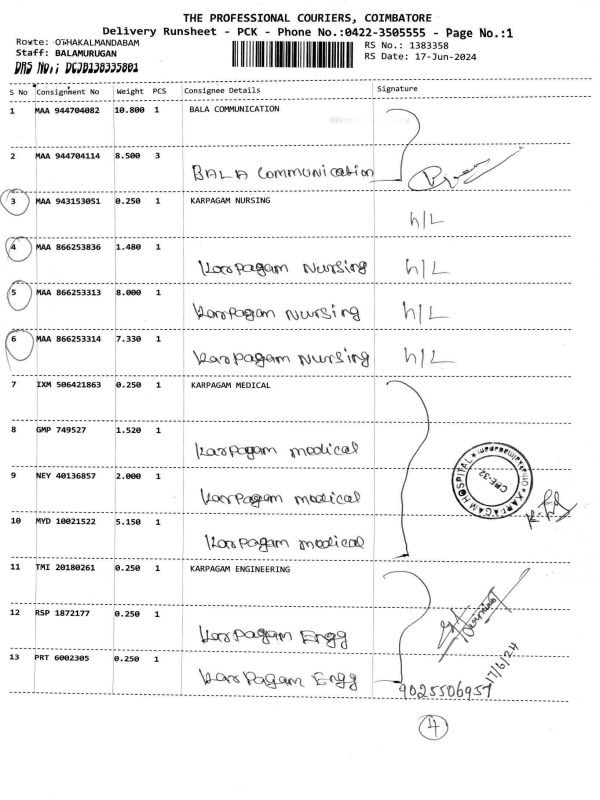 THE PROFESSIONAL COURIERS, COIMBATORE
Delivery Runsheet - PCK - Phone No.:0422-3505555 - Page No.:1
Rowte: OTHAKALMANDABAM
RS No.: 1383358
Staff: BALAMURUGAN
RS Date: 17-Jun-2024
DRS No.: DCJB138335801
S No Consignment No Weight PCS Consignee Details Signature
1 MAA 944704082 10.800 1 BALA COMMUNICATION
2 MAA 944704114 8.500 3
BALA Communication
3 MAA 943153051 0.250 1 KARPAGAM NURSING
h/L
4 MAA 866253836 1.480 1
Karpagam Nursing h/L
5 MAA 866253313 8.000 1
Karpagam Nursing h/L
6 MAA 866253314 7.330 1
Karpagam Nursing h/L
7 IXM 506421863 0.250 1 KARPAGAM MEDICAL
8 GMP 749527 1.520 1
Karpagam medical
KARPAGAM HOSPITAL
CRE-32
9 NEY 40136857 2.000 1
Karpagam medical
10 MYD 10021522 5.150 1
Karpagam medical
11 TMI 20180261 0.250 1 KARPAGAM ENGINEERING
12 RSP 1872177 0.250 1
Karpagam Engg
17/6/24
13 PRT 6002305 0.250 1
Karpagam Engg
9025506957
4